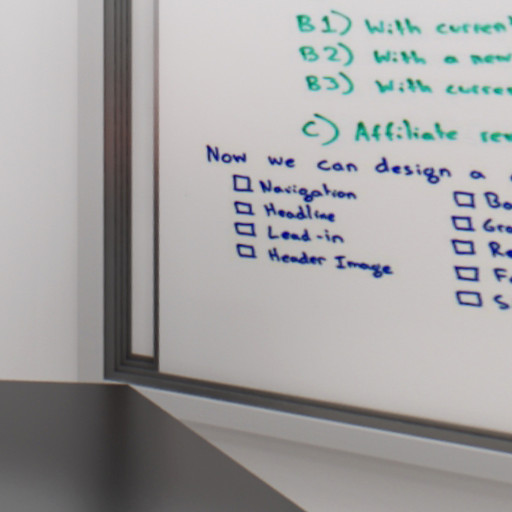 B1) With current
B2) With a new
B3) With
C) Affiliate
Now we can design a
Navigation
Headline
Lead-in
Header Image